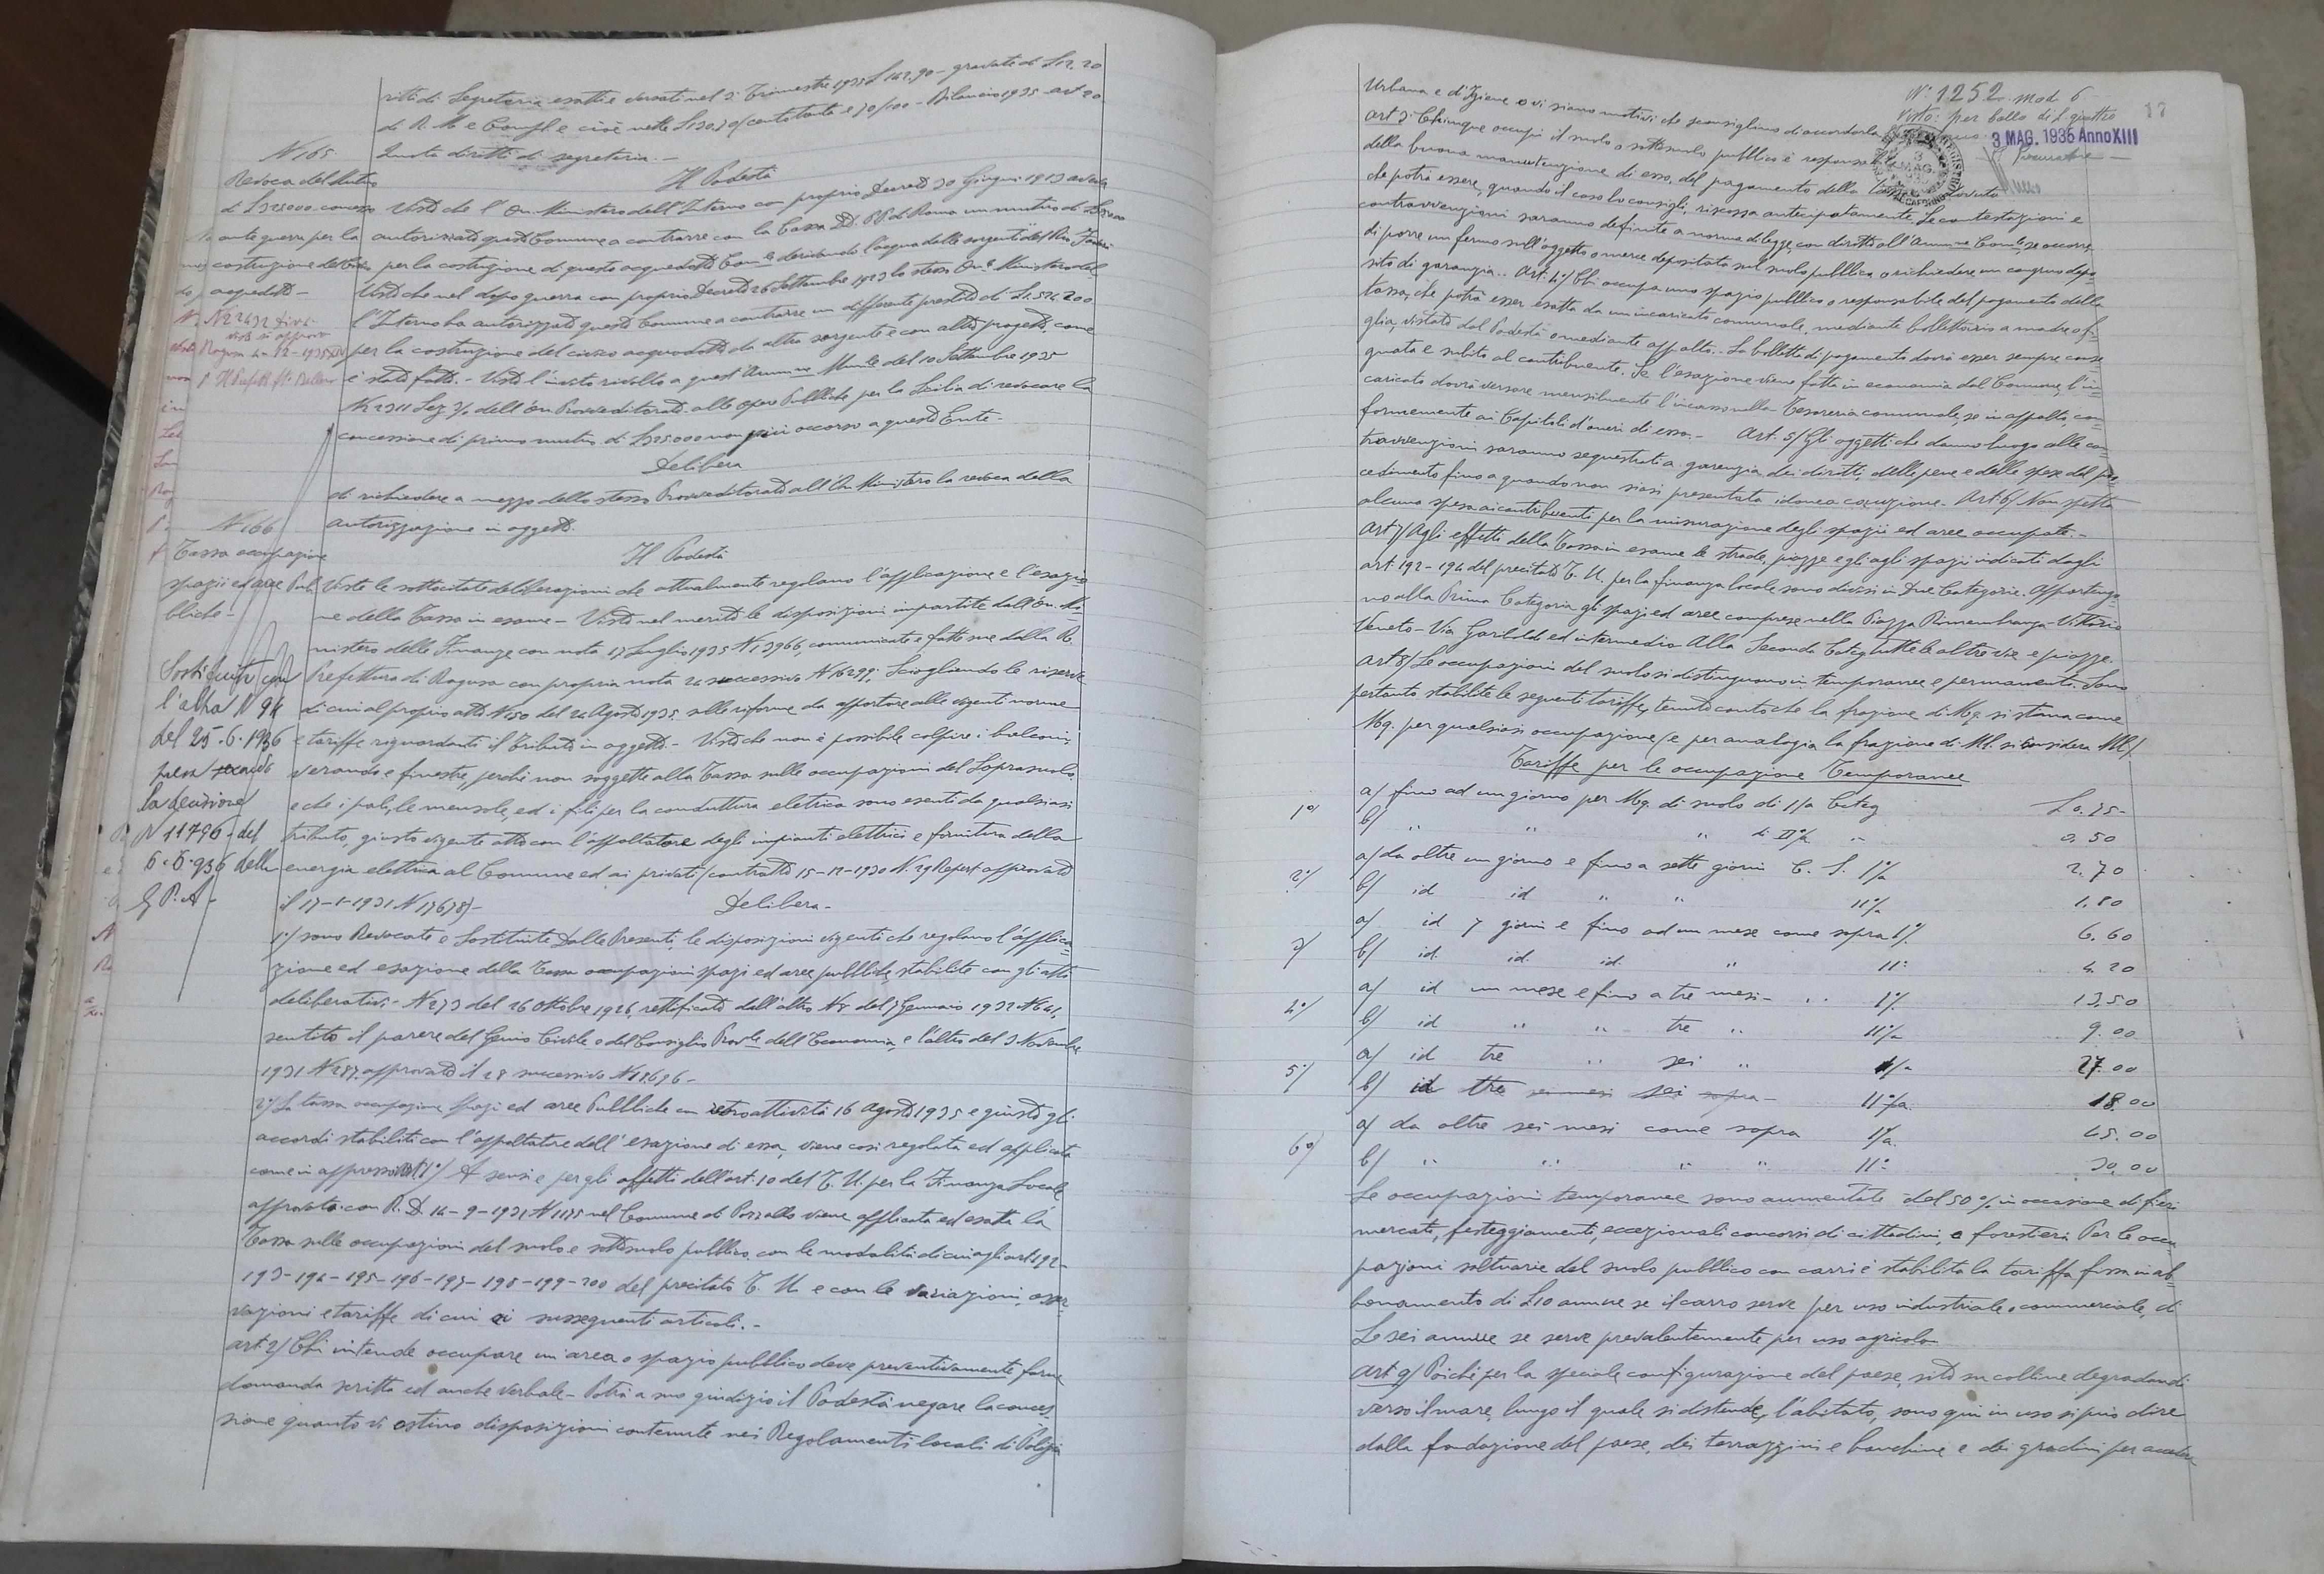 ritti di Segreteria esatti e versati nel 3° Trimestre 1935 L 162,90 – gravate di L 12.20
di R. M e Compl. e cioè nette L 130.70 (centotrenta e 70/100 – Bilancio 1935 – art 20
Quota diritti di segreteria. –
N 165
Revoca del Mutuo
di L 325000 concesso
ante guerra per la
costruzione del Civico
acquedotto –
N 22432 Div.
visto si approva
Ragusa 4–12–1935 XIV
p Il Prefetto
Il Podestà
Visto che l'On. Ministero dell'Interno con proprio Decreto 30 Giugno 1913 aveva
autorizzato questo Comune a contrarre con la Cassa DD. PP. di Roma un mutuo di L 325000
per la costruzione di questo acquedotto Com.le derivando l'acqua dalle sorgenti del Rio
Visto che nel dopo guerra con proprio Decreto 26 Settembre 1923 lo stesso On.le Ministero del
l'Interno ha autorizzato questo Comune a contrarre un differente prestito di L 1.524.200
per la costruzione del civico acquedotto da altra sorgente e con altro progetto, come
è stato fatto. – Visto l'invito rivolto a quest'Amm.ne Mun.le del 10 Settembre 1935
N 2311 Sez 3/0 dell'On Provveditorato alle Opere Pubbliche per la Sicilia di revocare la
concessione di primo mutuo di L 325000 non più occorso a questo Ente –
Delibera
di richiedere a mezzo dello stesso Provveditorato all'On Ministero la revoca della
autorizzazione in oggetto.
N 166
Tassa occupazione
spazii ed aree Pub
bliche –
Sostituito con
l'altra N 94
del 25.6.1936
presa secondo
la decisione
N 11796 del
6.5.936 della
G P A –
Il Podestà
Viste le sottocitate deliberazioni che attualmente regolano l'applicazione e l'esazio
ne della Tassa in esame – Visto nel merito le disposizioni impartite dall'On. Mi
nistero delle Finanze con nota 17 Luglio 1935 N 13966, comunicate e fatte sue dalla R.
Prefettura di Ragusa con propria nota 24 successivo N 16299; Sciogliendo le riserve
di cui al proprio atto N 150 del 24 Agosto 1935 sulle riforme da apportare alle vigenti norme
e tariffe riguardanti il Tributo in oggetto. – Visto che non è possibile colpire i balconi,
verande e finestre, perchè non soggette alla Tassa sulle occupazioni del Soprasuolo
e che i pali, le mensole, ed i fili per la conduttura elettrica sono esenti da qualsiasi
tributo, giusto vigente atto con l'appaltatore degli impianti elettrici e fornitura della
energia elettrica al Comune ed ai privati (contratto 15–12–1930 N. 29 Repert approvato
il 17–1–1931 N 17678) –
Delibera –
1°/ sono Revocate e Sostituite Dalle Presenti le disposizioni vigenti che regolano l'applica
zione ed esazione della Tassa occupazioni spazi ed aree pubbliche, stabilite con gli atti
deliberativi – N 273 del 26 Ottobre 1926, rettificato dall'altro N 8 del 7 Gennaio 1932 N 641,
sentito il parere del Genio Civile e del Consiglio Prov.le dell'Economia, e l'altro del 3 Novembre
1931 N 287, approvato il 28 successivo N 18696 –
2°/ La tassa occupazione Spazi ed aree Pubbliche con retroattività 16 Agosto 1935 e giusto gli
accordi stabiliti con l'appaltatore dell'esazione di essa, viene così regolata ed applicata
come in appresso: art 1°/ A sensi e per gli effetti dell'art. 10 del T. U. per la Finanza Locale
approvato con R. D 14–9–1931 N 1175 nel Comune di Pozzallo viene applicata ed esatta la
Tassa sulle occupazioni del suolo e sottosuolo pubblico, con le modalità di cui agli art 192–
193–194–195–196–197–198–199–200 del precitato T. U. e con le variazioni, osser
vazioni e tariffe di cui ai susseguenti articoli. –
art 2/ Chi intende occupare un area o spazio pubblico deve preventivamente farne
domanda scritta ed anche verbale – Potrà a suo giudizio il Podestà negare la conces
sione quanto vi ostino disposizioni contenute nei Regolamenti locali di Polizia
N° 1252 mod 6
Visto: per bollo di L. quattro
17
3 MAG. 1935 Anno XIII
Il Procuratore
Urbana e d'Igiene o vi siano motivi che sconsigliano di accordarla
art 3° Chiunque occupi il suolo o sottosuolo pubblico è responsabile
della buona manutenzione di esso, del pagamento della Tassa dovuta
che potrà essere, quando il caso lo consigli, riscossa anticipatamente. Le contestazioni e
contravvenzioni saranno definite a norma di legge, con diritto all'Amm.ne Com.le, se occorre,
di porre un fermo sull'oggetto o merce depositata sul suolo pubblico o richiedere un congruo depo
sito di garanzia. . Art: 4°/ Chi occupa uno spazio pubblico o responsabile del pagamento della
tassa, che potrà esser esatta da un incaricato comunale, mediante bollettario a madre e fi
glia, vistato dal Podestà o mediante appalto. – La bolletta di pagamento dovrà esser sempre conse
gnata e subito al contribuente. Se l'esazione viene fatta in economia dal Comune, l'in
caricato dovrà versare mensilmente l'incasso nella Tesoreria comunale, se in appalto, con
formemente ai Capitoli d'oneri di esso. – Art. 5/ Gli oggetti che danno luogo alle con
travvenzioni saranno sequestrati a garenzia dei diritti, delle pene e delle spese del pro
cedimento fino a quando non siasi presentata idonea cauzione. Art 6/ Non spetta
alcuna spesa ai contribuenti per la misurazione degli spazii ed aree occupate. –
Art 7/ Agli effetti della Tassa in esame le strade, piazze e gli agli spazi indicati dagli
art 192–194 del precitato T. U. per la finanza locale sono divisi in Due Categorie. Appartengo
no alla Prima Categoria gli spazi ed aree comprese nella Piazza Rimembranza – Vittorio
Veneto – Via Garibaldi ed intermedia. Alla Seconda Categ tutte le altre vie e piazze.
art 8/ Le occupazioni del suolo si distinguono in temporanee e permanenti. Sono
pertanto stabilite le seguenti tariffe, tenuto conto che la frazione di Mq. si stima come
Mq. per qualsiasi occupazione (e per analogia la frazione di Ml. si considera Ml).
Tariffe per le occupazione Temporanee
1°/ a/ fino ad un giorno per Mq. di suolo di 1/a Categ L 0.75 –
b/ " " " di II°/a " 0.50
2°/ a/ da oltre un giorno e fino a sette giorni C. S. 1°/a 2.70
b/ id id " " 11°/a 1.80
3/ a/ id 7 giorni e fino ad un mese come sopra 1°/. 6.60
b/ id. id. id. " 11° 4.20
4°/ a/ id un mese e fino a tre mesi – . . 1°/. 13.50
b/ id " " tre " 11°/a 9.00
5°/ a/ id tre " sei " 1/a 27.00
b/ id tre sei mesi sei sopra – 11°/a. 18.00
6°/ a/ da oltre sei mesi come sopra 1°/a. 45.00
b/ " " " " 11° 30.00
Le occupazioni temporanee sono aumentate del 50 % in occasione di fiere
mercati, festeggiamenti, eccezionali concorsi di cittadini, e forestieri. Per le occu
pazioni saltuarie del suolo pubblico con carri è stabilita la tariffa fissa in ab
bonamento di L 10 annue se il carro serve per uso industriale o commerciale, di
L. sei annue se serve prevalentemente per uso agricolo
art 9/ Poichè per la speciale configurazione del paese, sito su colline degradanti
verso il mare, lungo il quale si distende, l'abitato, sono qui in uso si può dire
dalla fondazione del paese, dei terrazzini e banchine e dei gradini per accedere